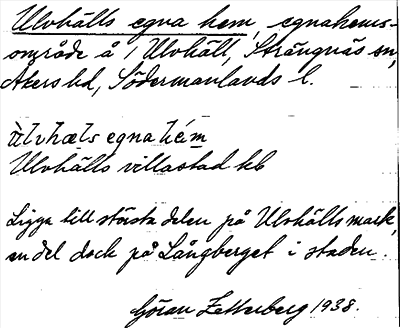 Ulvhälls egna hem, egnahems-
område å 1 Ulvhäll, Strängnäs sn,
Åkers hd, Södermanlands l.
ùlvhæls egna hém
Ulvhälls villastad kb
Ligga till största delen på Ulvhälls mark,
en del dock på Långberget i staden.
Göran Zetterberg 1938.